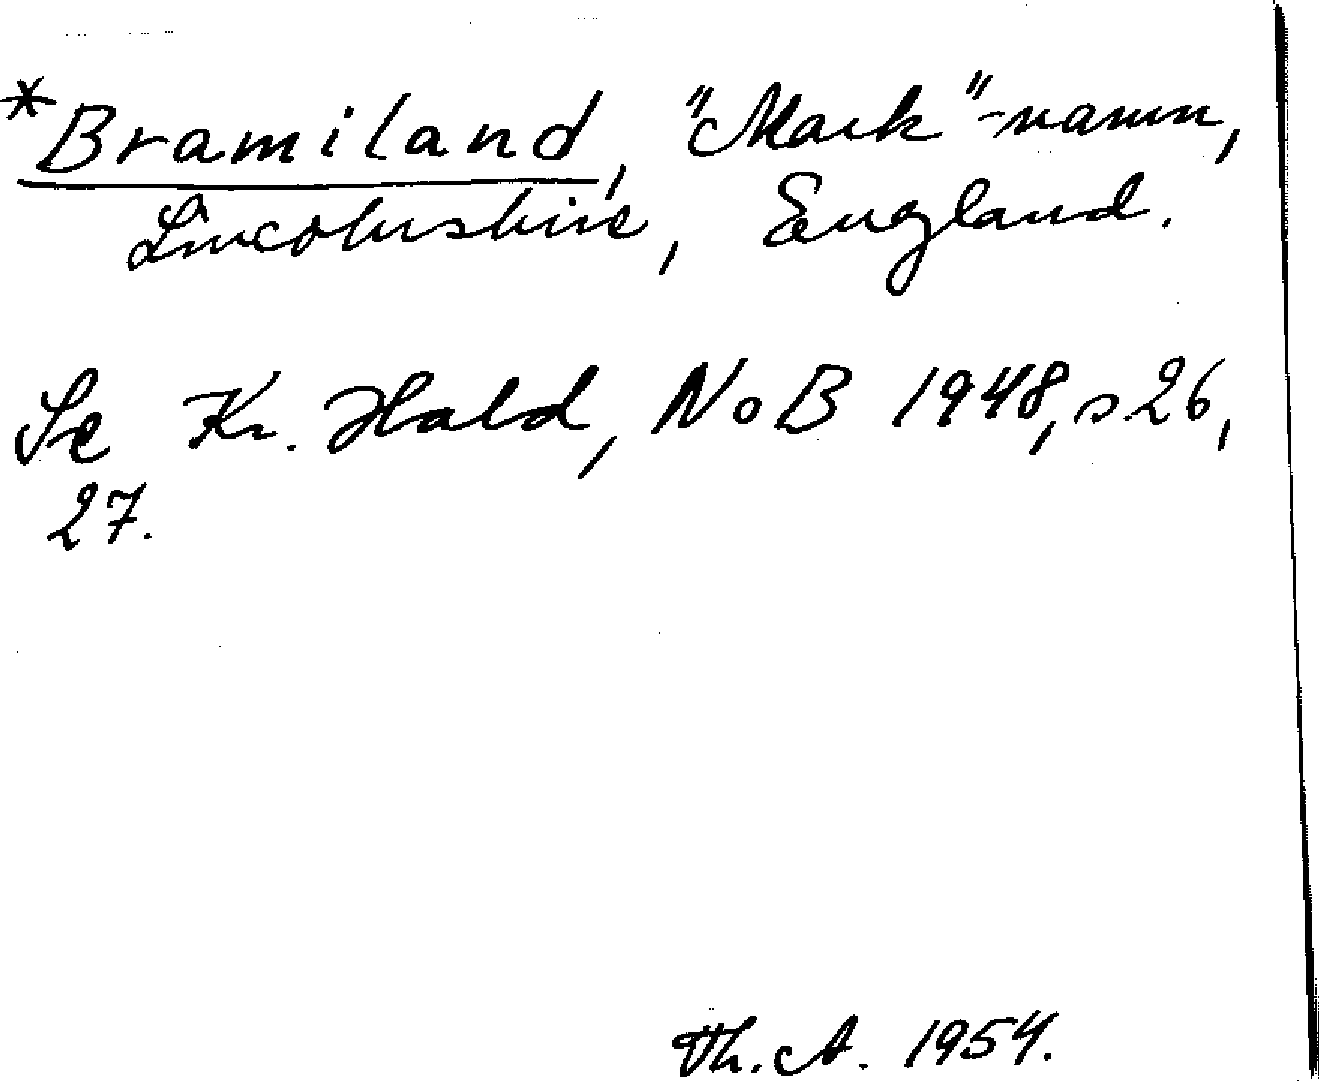 *Bramiland, "Mark"-namn,
Lincolnshire, England.
Se Kr. Hald, NoB 1948, s. 26,
27.
Th. A. 1954.